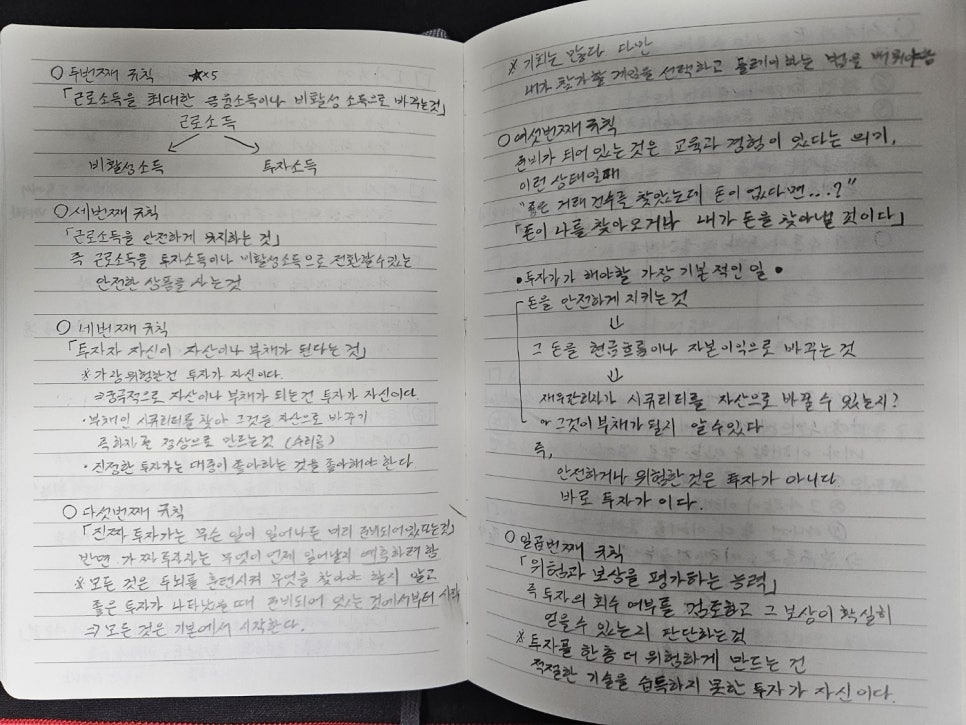 ○ 두번째 규칙 ★×5
「근로소득을 최대한 금융소득이나 비활성 소득으로 바꾸는것」
근로소득
비활성소득 투자소득
○ 세번째 규칙
「근로소득을 안전하게 유지하는 것」
즉 근로소득을 투자소득이나 비활성소득으로 전환할수있는
안전한 상품을 사는것
○ 네번째 규칙
「투자자 자신이 자산이나 부채가 된다는 것」
※ 가장위험한건 투자가 자신이다.
⇒궁극적으로 자산이나 부채가 되는건 투자가 자신이다
・부채인 시큐리티를 찾아 그것을 자산으로 바꾸기
즉 화차를 정상으로 만드는것 (수리공)
・진정한 투자가는 대중이 좋아하는 것을 좋아해야 한다
○ 다섯번째 규칙
「진짜 투자가는 무슨 일이 일어나든 미리 준비되어있다는것」
반면 가짜투자자는 무엇이 언제 일어날지 예측하려함
※ 모든 것은 두뇌를 훈련시켜 무엇을 찾아야 할지 알고
좋은 투자가 나타났을때 준비되어 있는 것에서부터 시작
⇒ 모든 것은 기본에서 시작한다.
※ 기회는 많다 다만
내가 참가할 게임을 선택하고 플레이 하는 법을 배워야함
○ 여섯번째 규칙
준비가 되어 있는것은 교육과 경험이 있다는 의기,
이런 상태일때
"좋은 거래 건수를 찾았는데 돈이 없다면...?"
「돈이 나를 찾아오거나 내가 돈을 찾아낼 것이다」
• 투자가가 해야할 가장 기본적인 일 •
돈을 안전하게 지키는 것
⇓
그 돈을 현금흐름이나 자본이익으로 바꾸는 것
⇓
재무관리사가 시큐리티를 자산으로 바꿀수 있는지?
or 그것이 부채가 될지 알 수있다
즉,
안전하거나 위험한 것은 투자가 아니다
바로 투자가 이다.
○ 일곱번째 규칙
「위험과 보상을 평가하는 능력」
즉 투자의 회수 여부를 검토하고 그 보상이 확실히
얻을수 있는지 판단하는것
※ 투자를 한층 더 위험하게 만드는 건
적절한 기술을 습득하지 못한 투자가 자신이다.